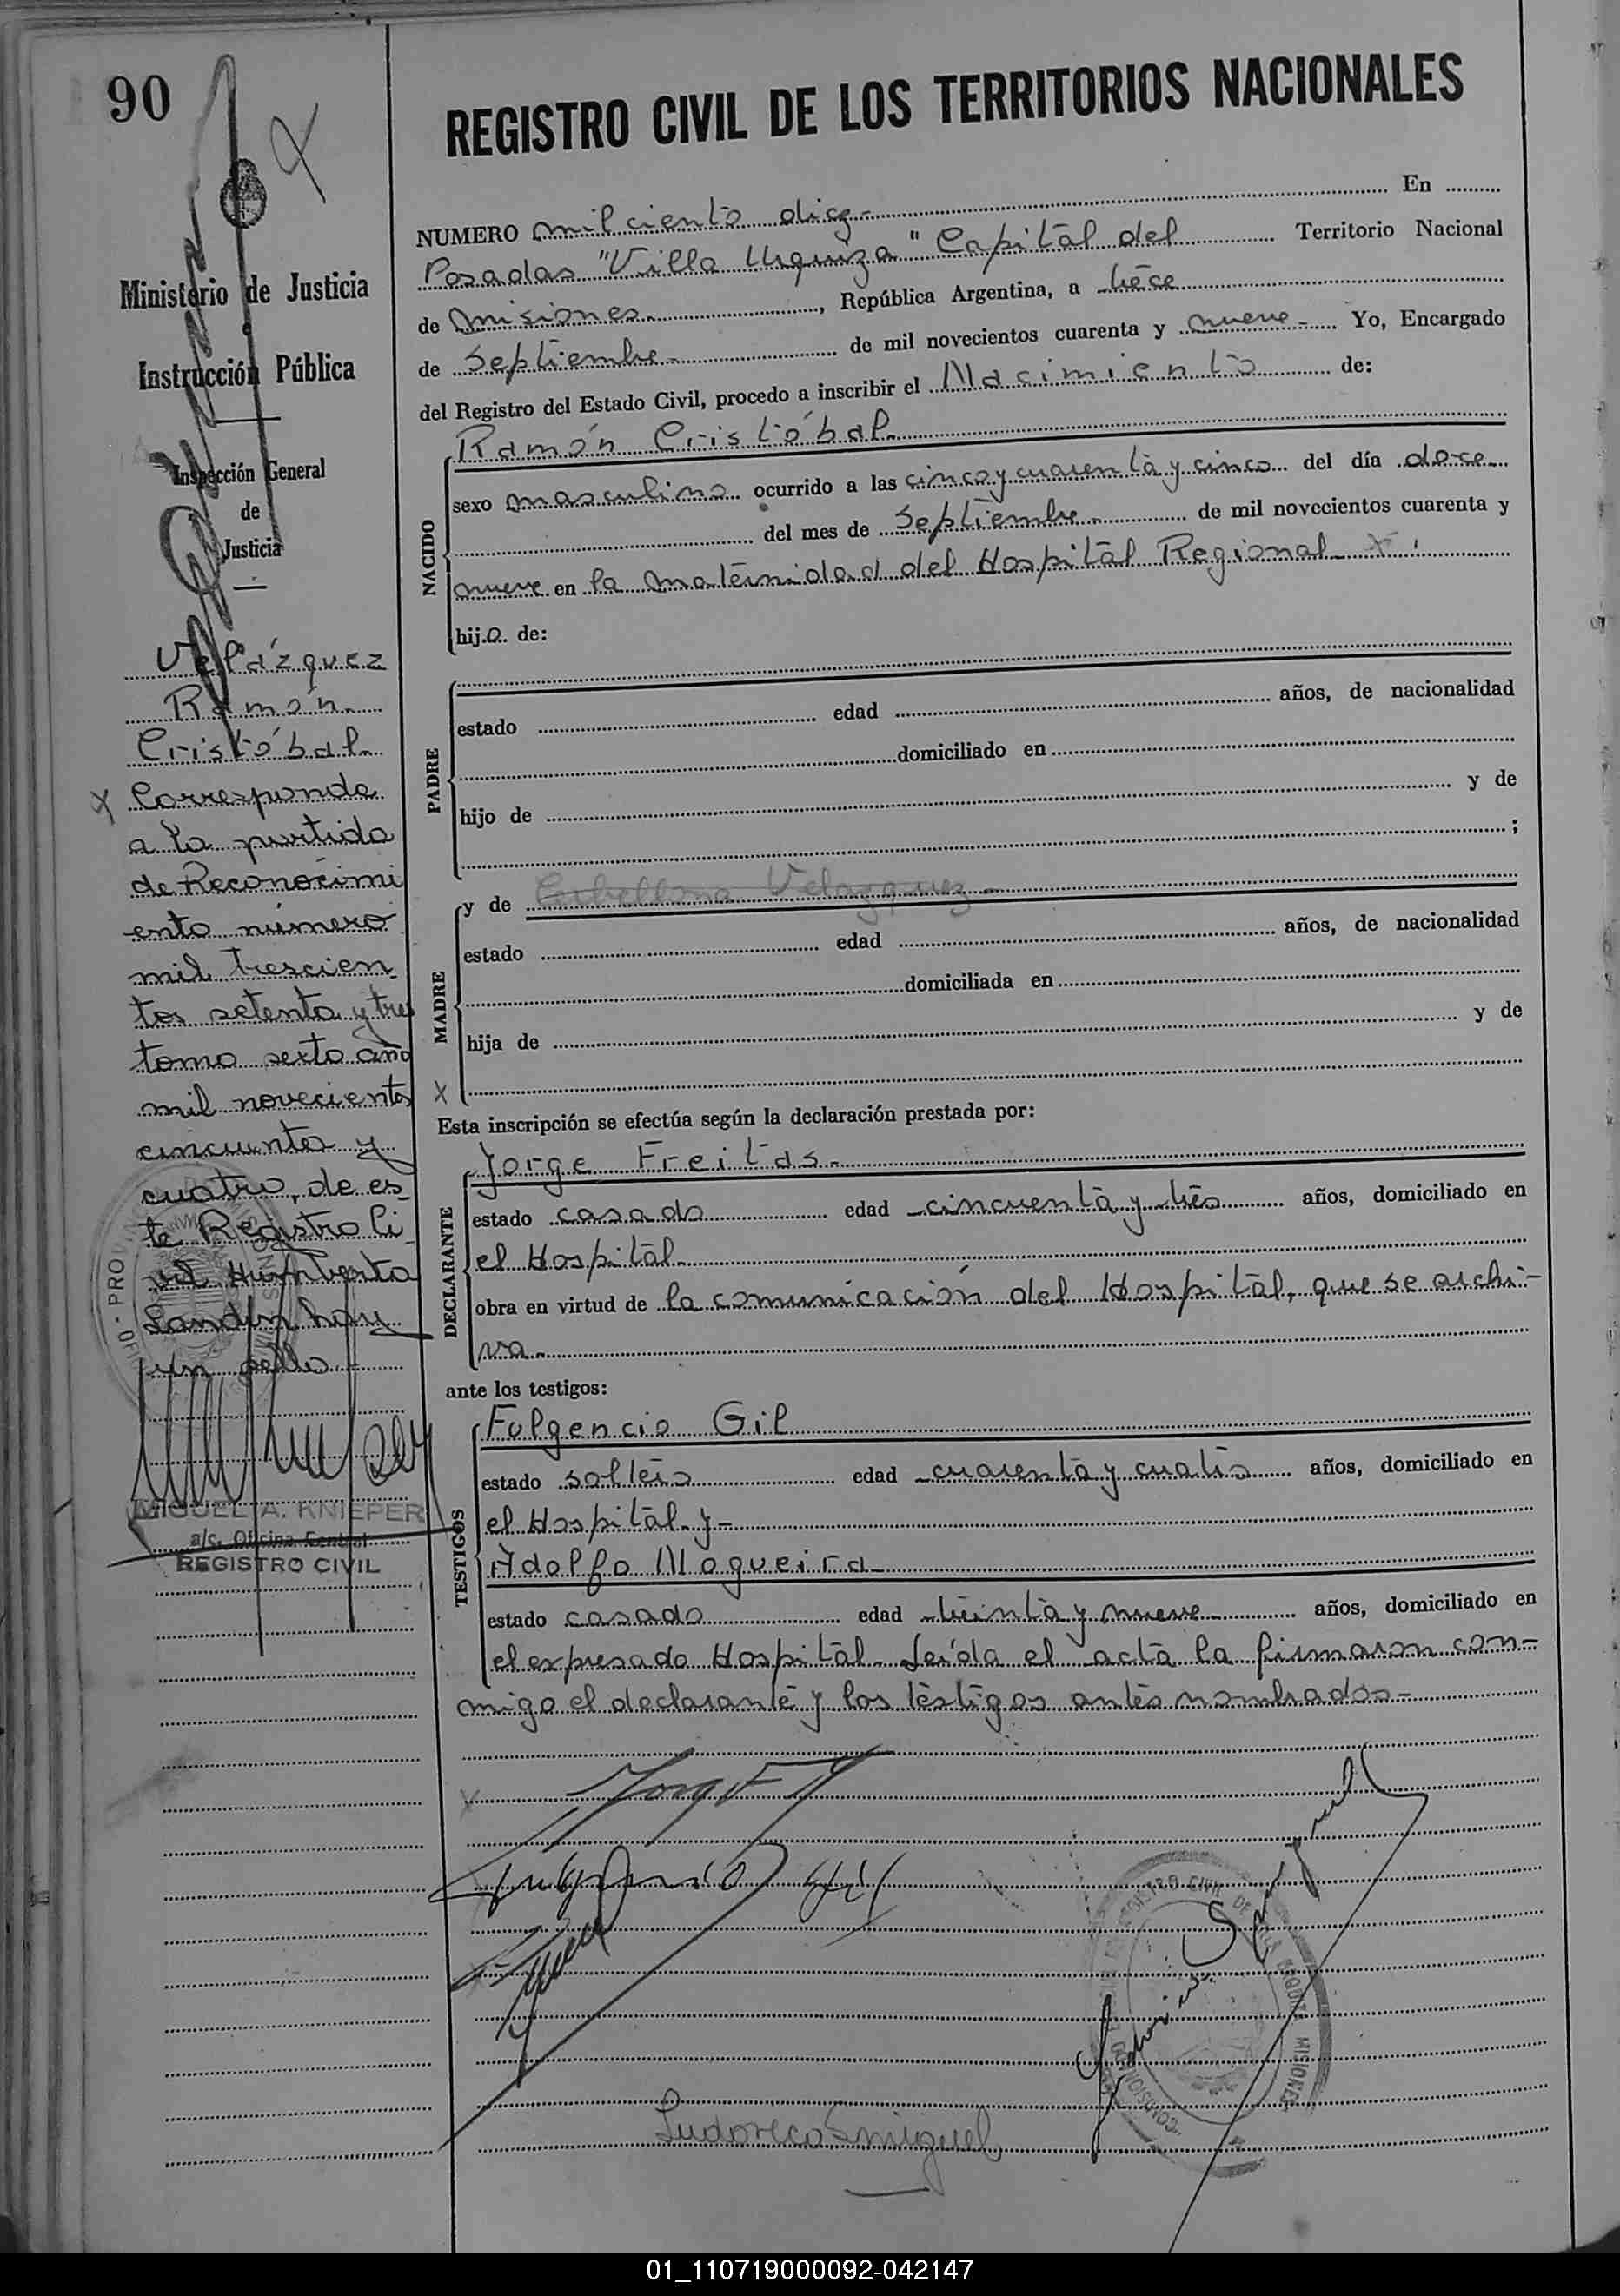 90
REGISTRO CIVIL DE LOS TERRITORIOS NACIONALES
Ministerio de Justicia
e
Instrucción Pública
Inspección General
de
Justicia
Velázquez
Ramón
Cristóbal
X Corresponde
a la partida
de Reconocimi
ento número
mil trescien
tos setenta y tres
tomo sexto año
mil novecientos
cincuenta y
cuatro, de es
te Registro Ci
vil Humberto
Landin hay
un sello
MIGUEL A. KNIEPER
a/c. Oficina Central
REGISTRO CIVIL
NUMERO mil ciento diez - En
Posadas "Villa Urquiza" Capital del Territorio Nacional
de Misiones, República Argentina, a trece
de Septiembre - de mil novecientos cuarenta y nueve - Yo, Encargado
del Registro del Estado Civil, procedo a inscribir el Nacimiento de:
NACIDO
Ramón Cristóbal
sexo masculino ocurrido a las cinco y cuarenta y cinco del día doce
del mes de Septiembre - de mil novecientos cuarenta y
nueve en la maternidad del Hospital Regional - X
hijo de:
PADRE
estado edad años, de nacionalidad
domiciliado en
hijo de y de
;
MADRE
y de Velazquez -
estado edad años, de nacionalidad
domiciliada en
hija de y de
X
Esta inscripción se efectúa según la declaración prestada por:
DECLARANTE
Jorge Freitas -
estado casado edad cincuenta y tres años, domiciliado en
el Hospital
obra en virtud de la comunicación del Hospital, que se archi-
va -
ante los testigos:
TESTIGOS
Fulgencio Gil
estado soltero edad cuarenta y cuatro años, domiciliado en
el Hospital y -
Adolfo Nogueira
estado casado edad treinta y nueve años, domiciliado en
el expresado Hospital. Leída el acta la firmaron con-
migo el declarante y los testigos antes nombrados -
Ludovico Smiguel
01_110719000092-042147